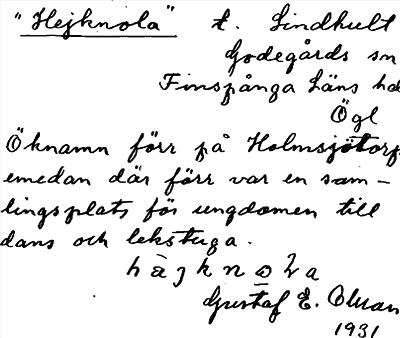 "Hejknola" t. Lindhult
Godegårds sn
Finspånga Läns hd
Ögl
Öknamn förr på Holmsjötorp
emedan där förr var en sam-
lingsplats för ungdomen till
dans och lekstuga.
hàjknωla
Gustaf E. Olman
1931